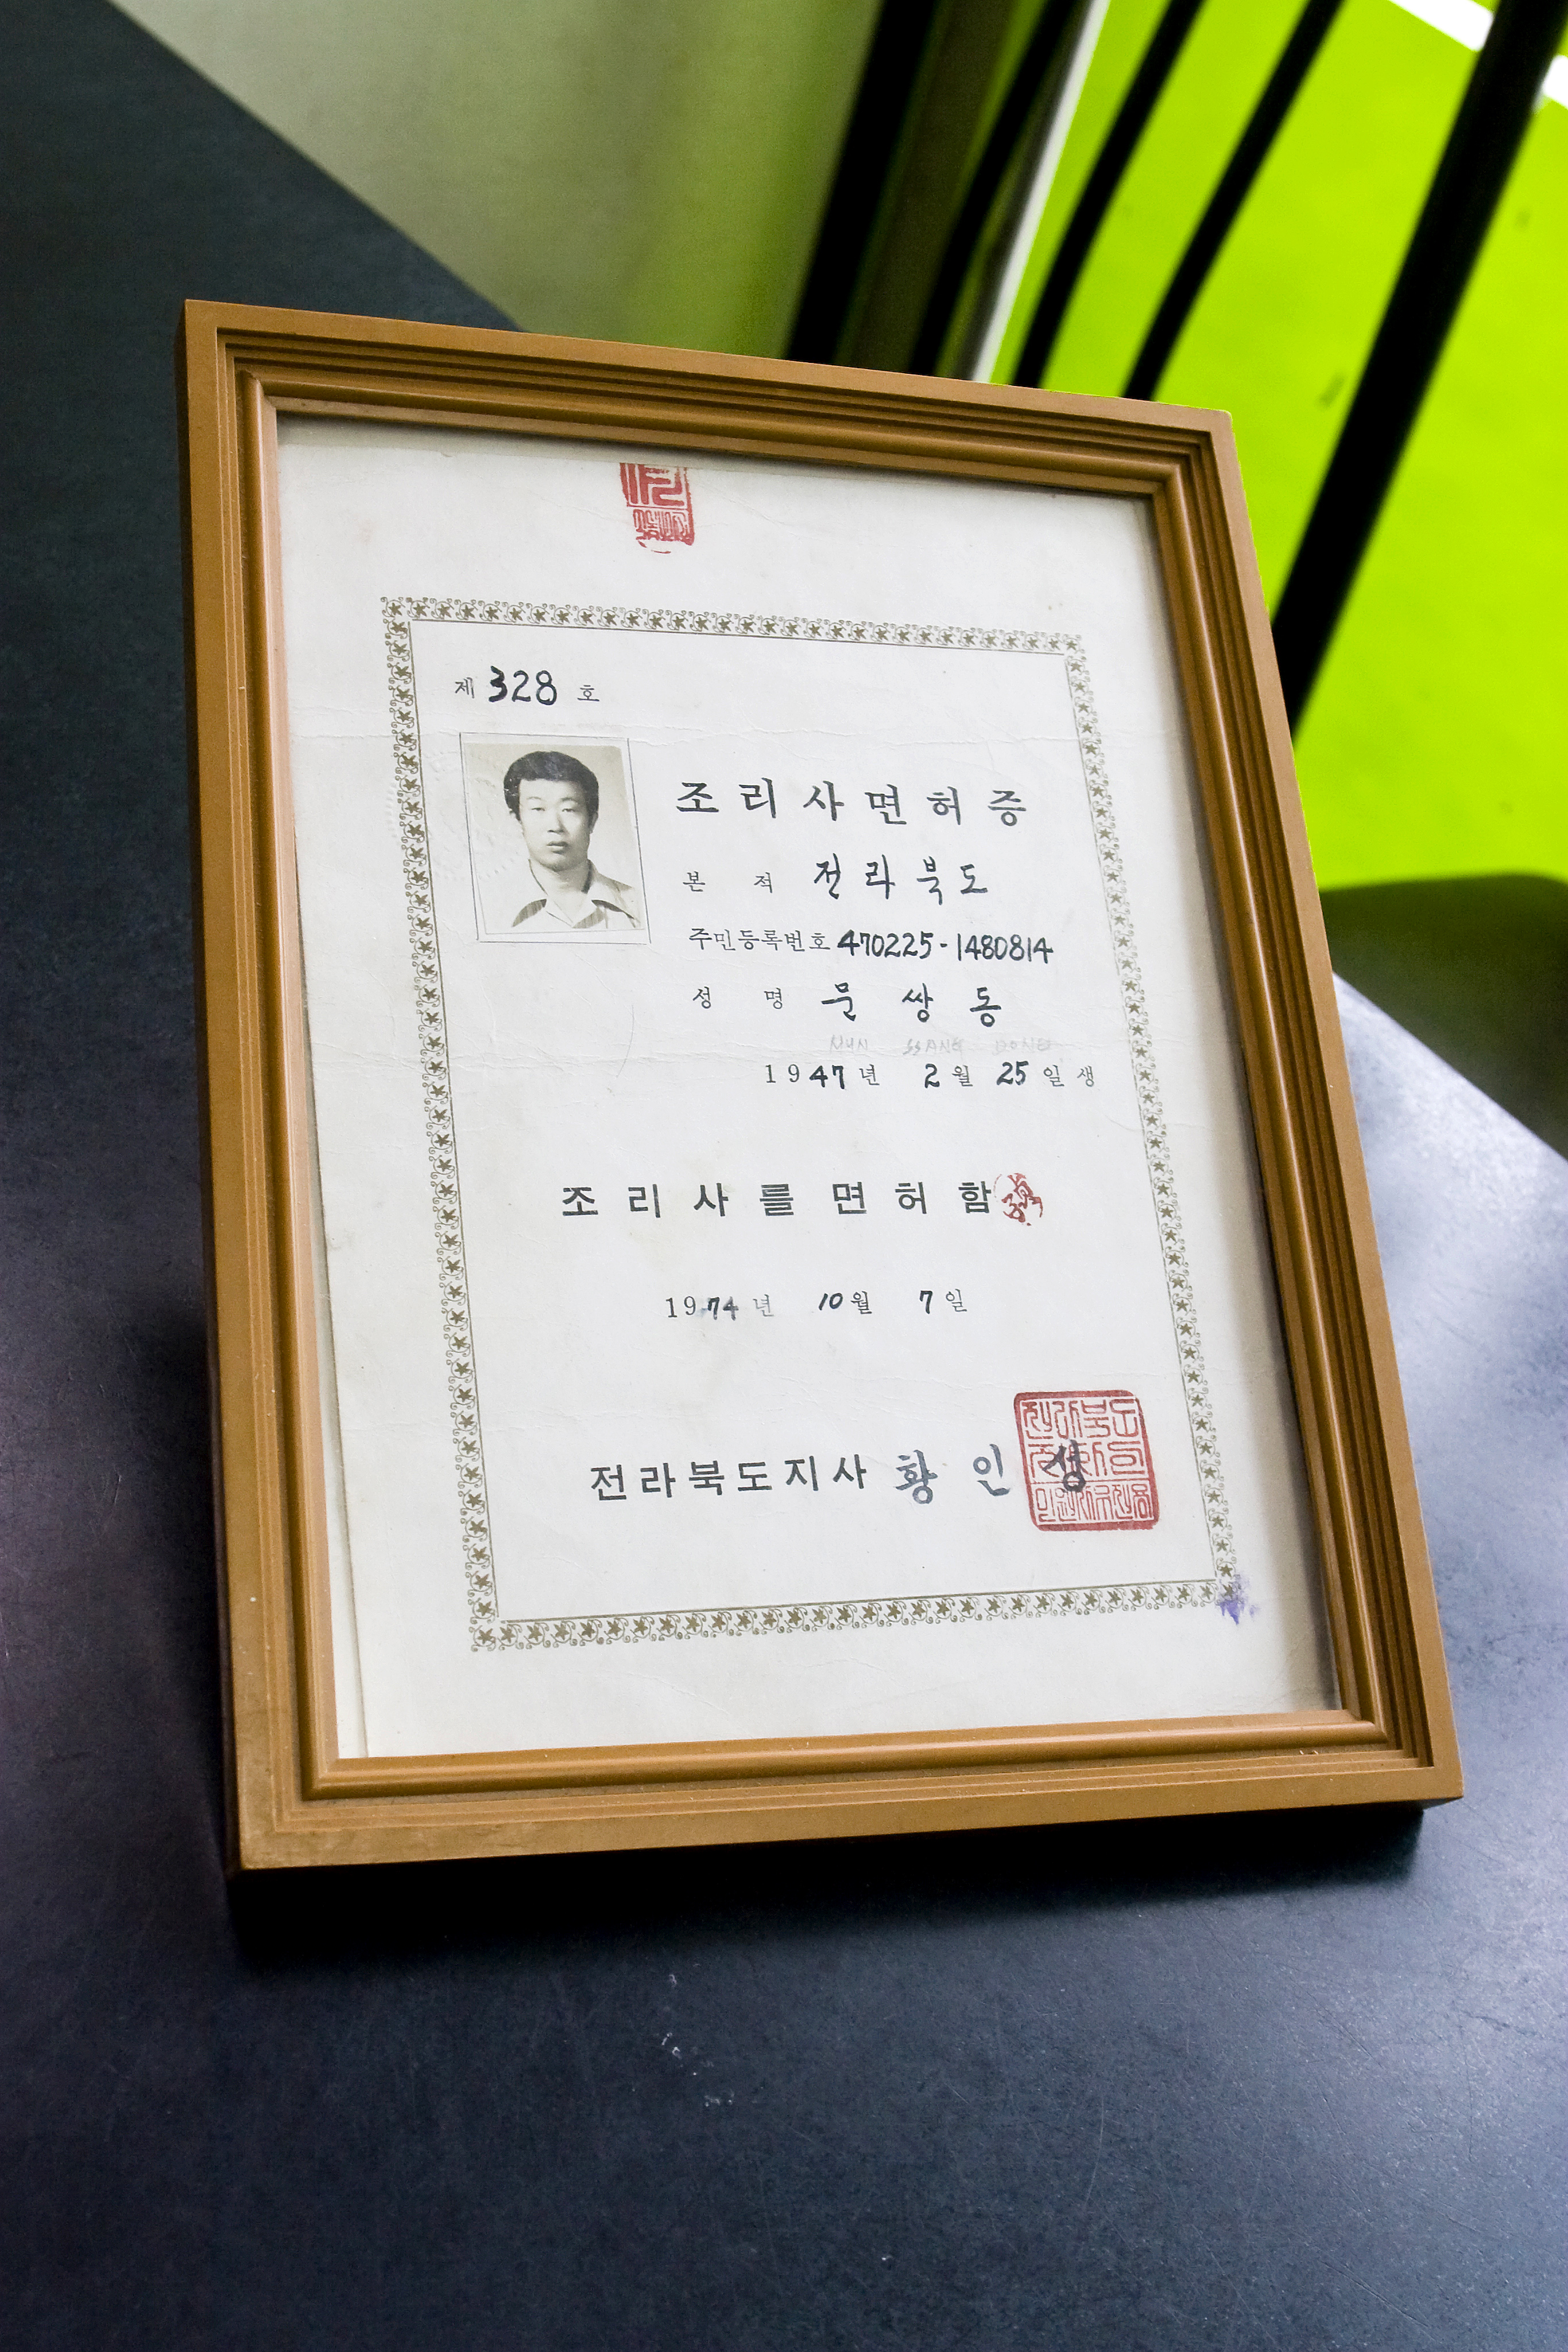 제 328 호
조리사면허증
본 적 전라북도
주민등록번호 470225-1480814
성 명 문 쌍 동
MUN SSANG DONG
1947년 2월 25일생
조리사를 면허함
1974년 10월 7일
전라북도지사 황 인 성